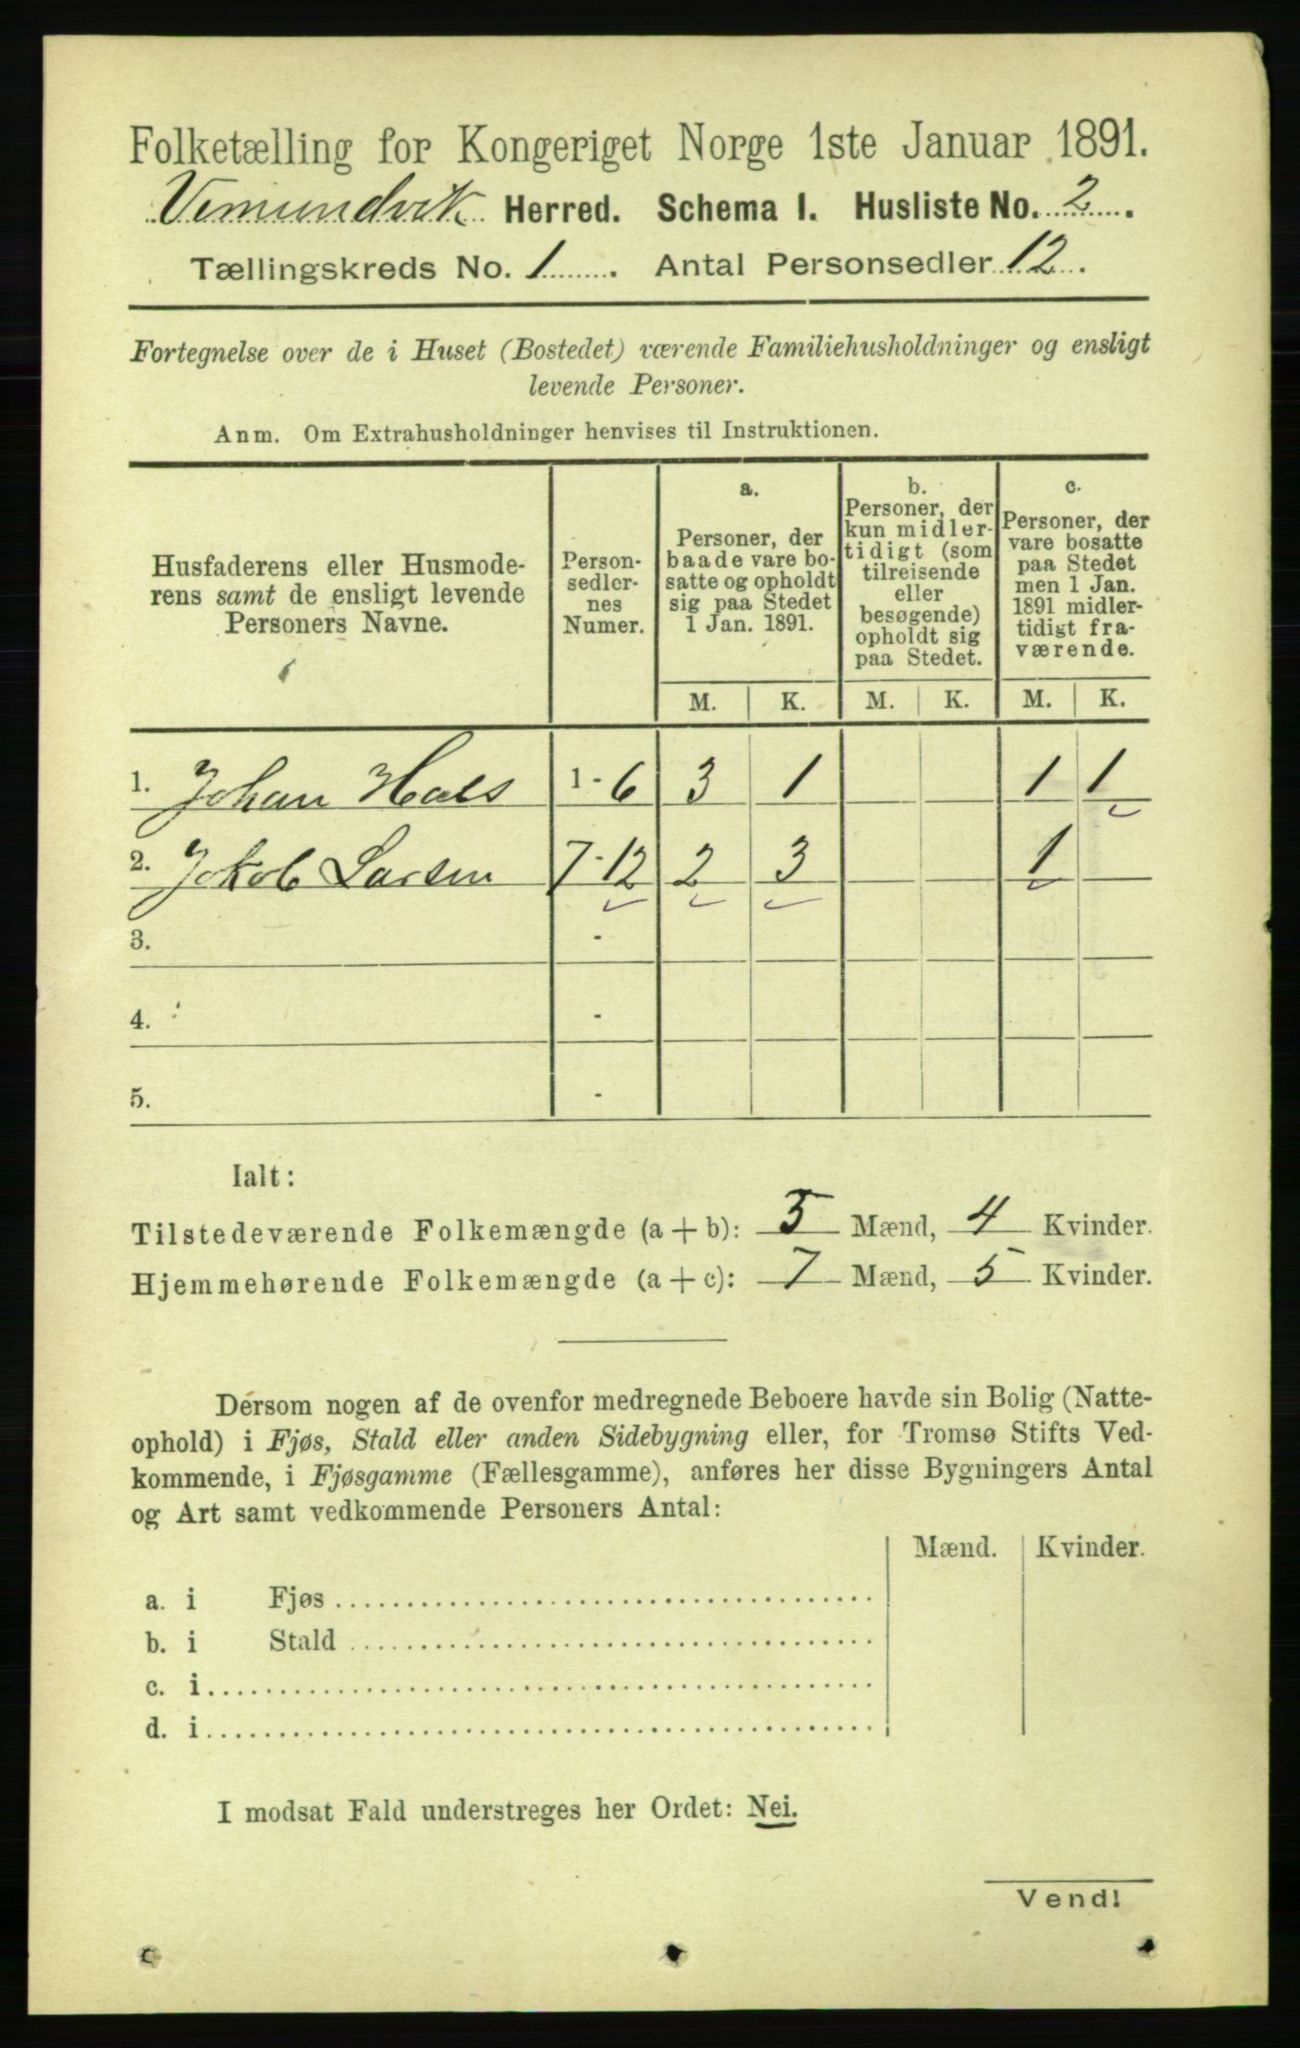 Folketælling for Kongeriget Norge 1ste Januar 1891.
Vemundvik Herred. Schema I. Husliste No. 2.
Tællingskreds No. 1. Antal Personsedler 12.
Fortegnelse over de i Huset (Bostedet) værende Familiehusholdninger og ensligt
levende Personer.
Anm. Om Extrahusholdninger henvises til Instruktionen.
Husfaderens eller Husmode-
rens samt de ensligt levende
Personers Navne.
Person-
sedler-
nes
Numer.
a.
Personer, der
baade vare bo-
satte og opholdt
sig paa Stedet
1 Jan. 1891.
b.
Personer, der
kun midler-
tidigt (som
tilreisende
eller
besøgende)
opholdt sig
paa Stedet.
c.
Personer, der
vare bosatte
paa Stedet
men 1 Jan.
1891 midler-
tidigt fra-
værende.
M. K. M. K. M. K.
1. Johan Hals 1-6 3 1 1 1
2. Jakob Larsen 7-12 2 3 1
3. -
4. -
5. -
Ialt:
Tilstedeværende Folkemængde (a + b): 5 Mænd, 4 Kvinder.
Hjemmehørende Folkemængde (a + c): 7 Mænd, 5 Kvinder.
Dersom nogen af de ovenfor medregnede Beboere havde sin Bolig (Natte-
ophold) i Fjøs, Stald eller anden Sidebygning eller, for Tromsø Stifts Ved-
kommende, i Fjøsgamme (Fællesgamme), anføres her disse Bygningers Antal
og Art samt vedkommende Personers Antal:
Mænd. Kvinder.
a. i Fjøs
b. i Stald
c. i
d. i
I modsat Fald understreges her Ordet: Nei.
Vend!